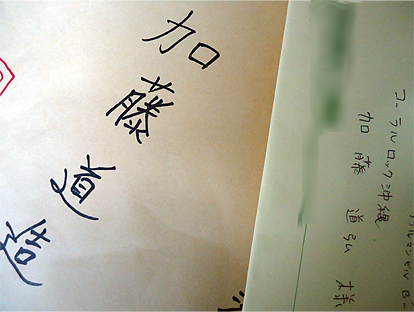 コーラルロック沖縄
加藤道弘様
加藤道